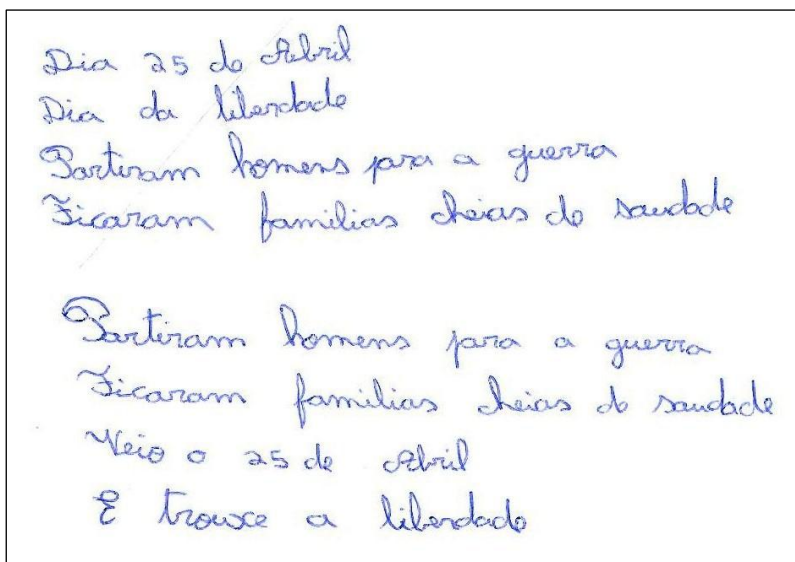 Dia 25 de Abril
Dia da liberdade
Partiram homens para a guerra
Ficaram familias cheias de saudade
Partiram homens para a guerra
Ficaram familias cheias de saudade
Veio o 25 de Abril
E trouxe a liberdade